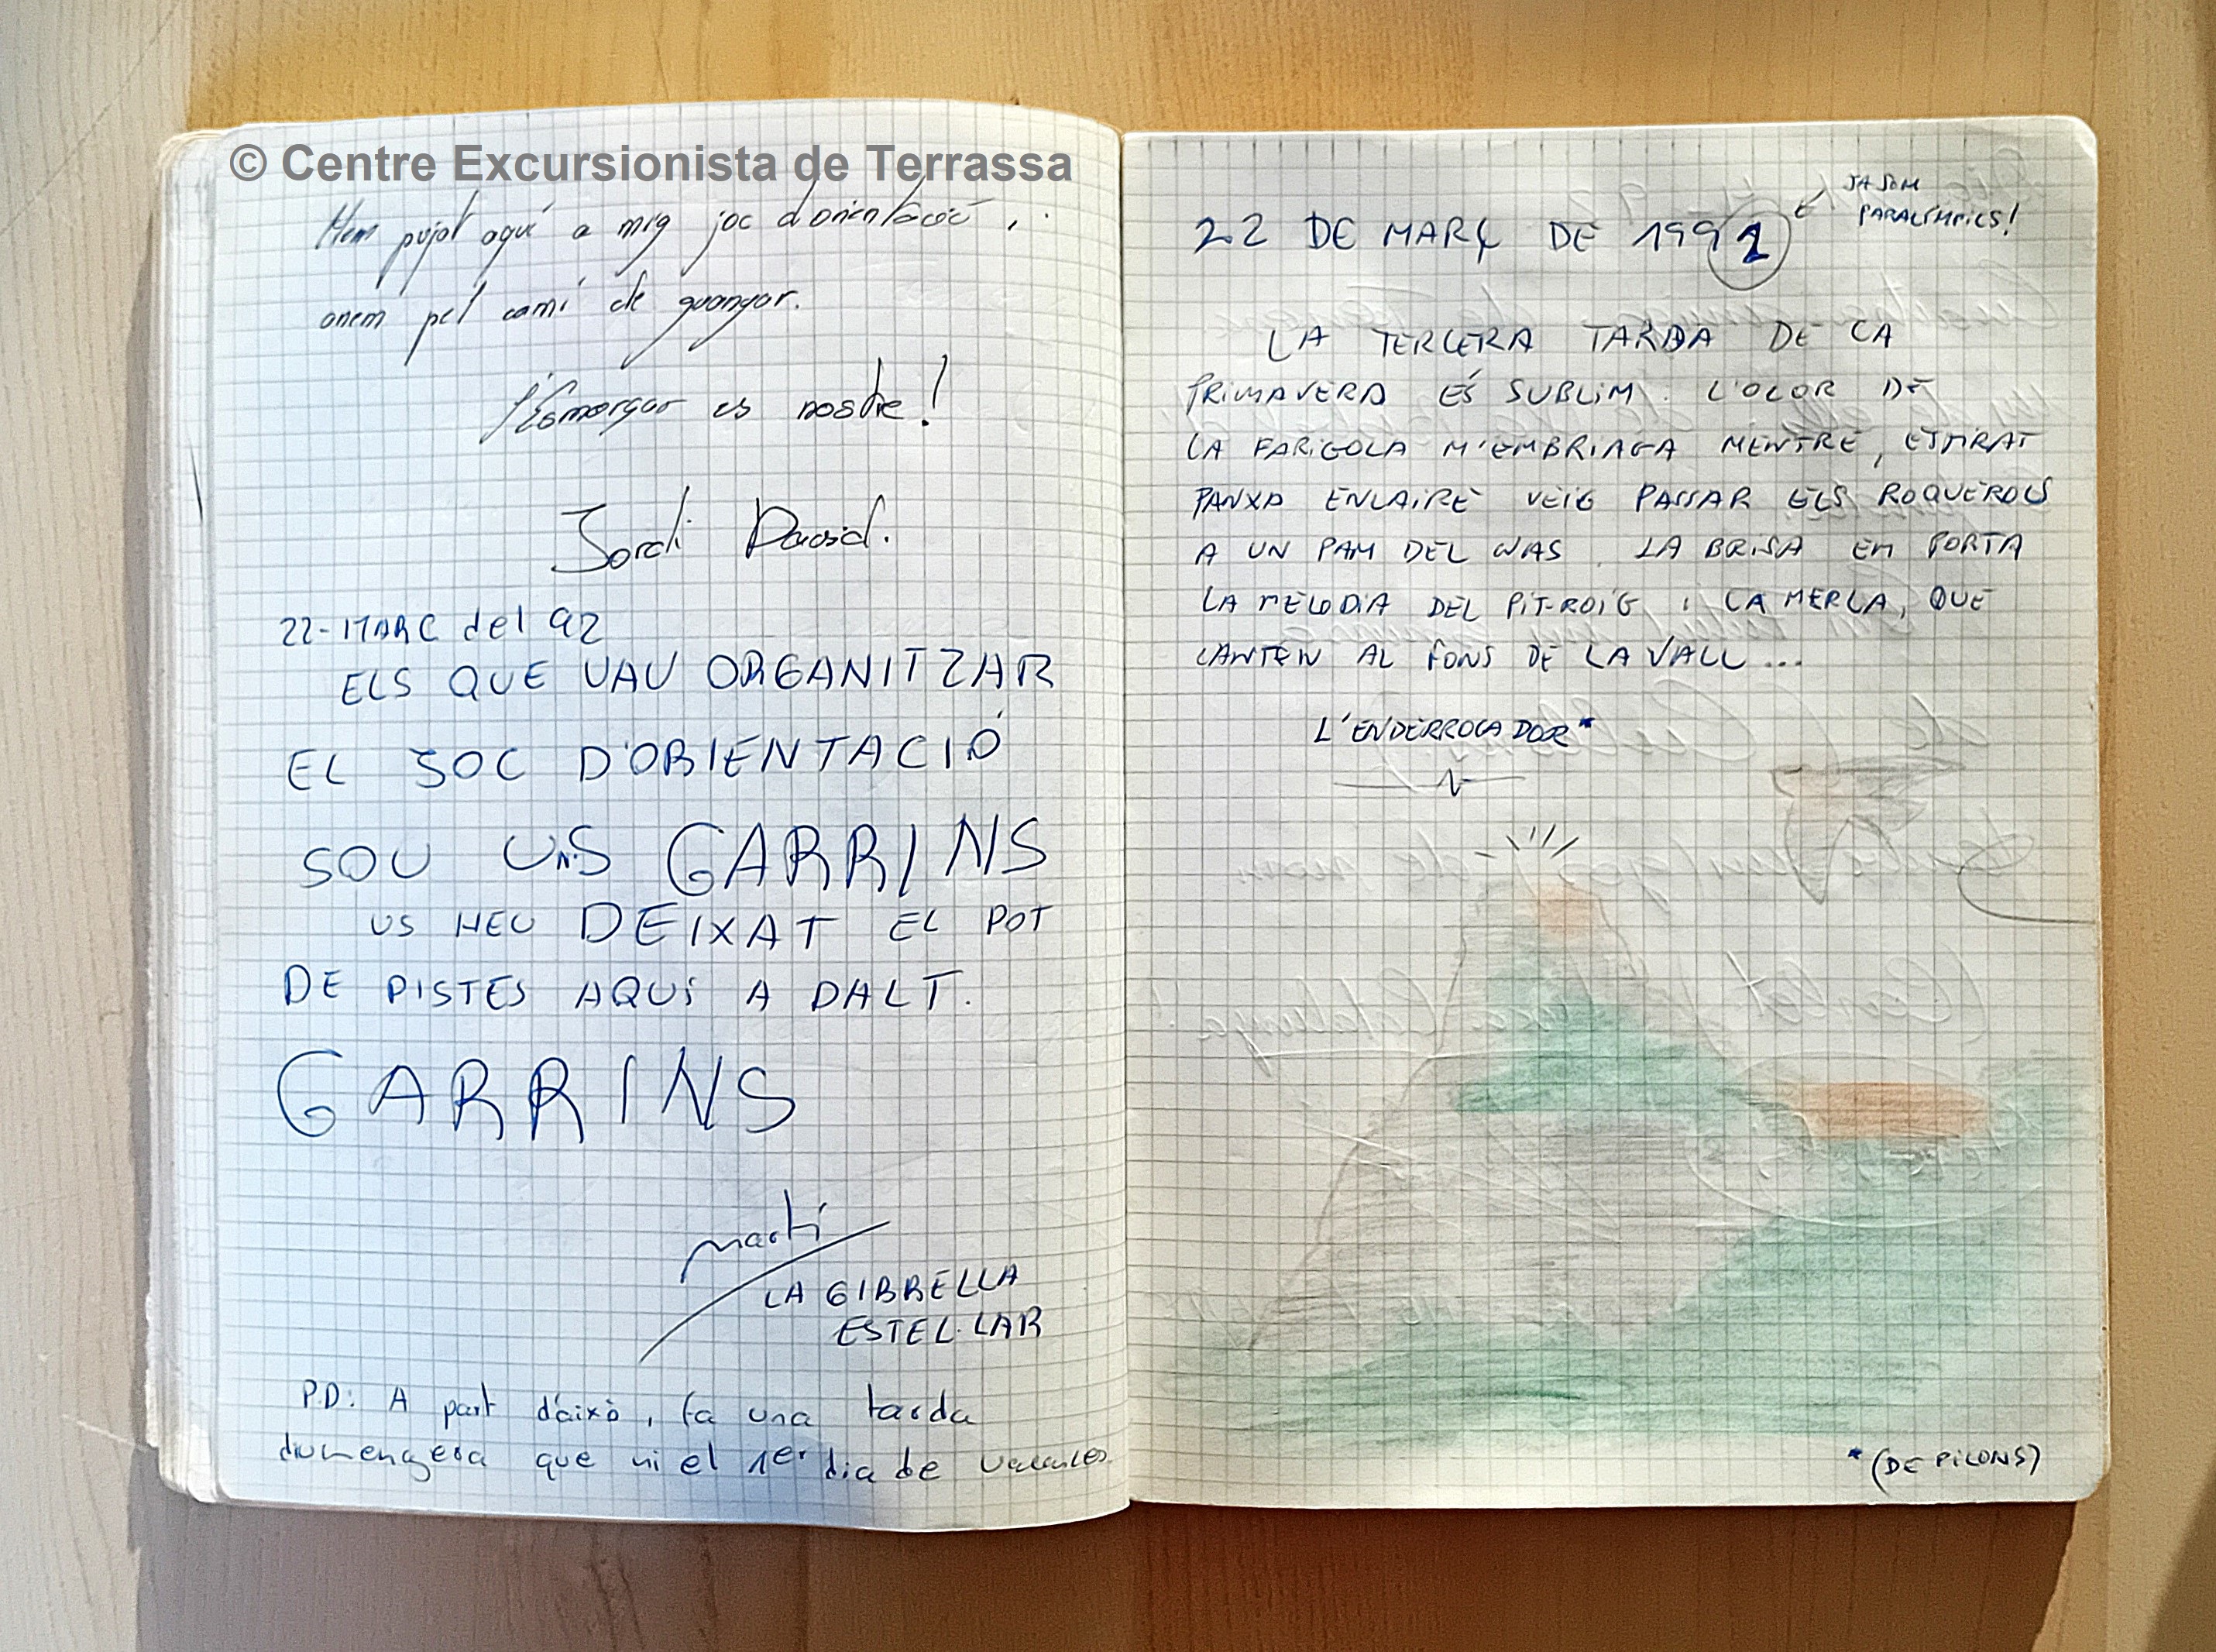 © Centre Excursionista de Terrassa
Hem pujat aquí a mig joc d'orientació,
anem pel camí de guanyar.
l'Esmorçar es nostre!
Jordi David.
22-MARC del 92
ELS QUE VAU ORGANITZAR
EL JOC D'ORIENTACIÓ
SOU UNS GARRINS
US HEU DEIXAT EL POT
DE PISTES AQUÍ A DALT.
GARRINS
martí
LA GIBRELLA
ESTEL·LAR
P.D: A part d'això, fa una tarda
diumengera que ni el 1er dia de vacances.
22 DE MARÇ DE 1992
JA SOM
PARALÍMPICS!
LA TERCERA TARDA DE LA
PRIMAVERA ÉS SUBLIM. L'OLOR DE
LA FARIGOLA M'EMBRIAGA MENTRE, ESTIRAT
PANXA ENLAIRE VEIG PASSAR ELS ROQUEROLS
A UN PAM DEL NAS. LA BRISA EM PORTA
LA MELODIA DEL PIT-ROIG I LA MERLA, QUE
CANTEN AL FONS DE LA VALL...
L'ENDERROCADOR*
*(DE PILONS)